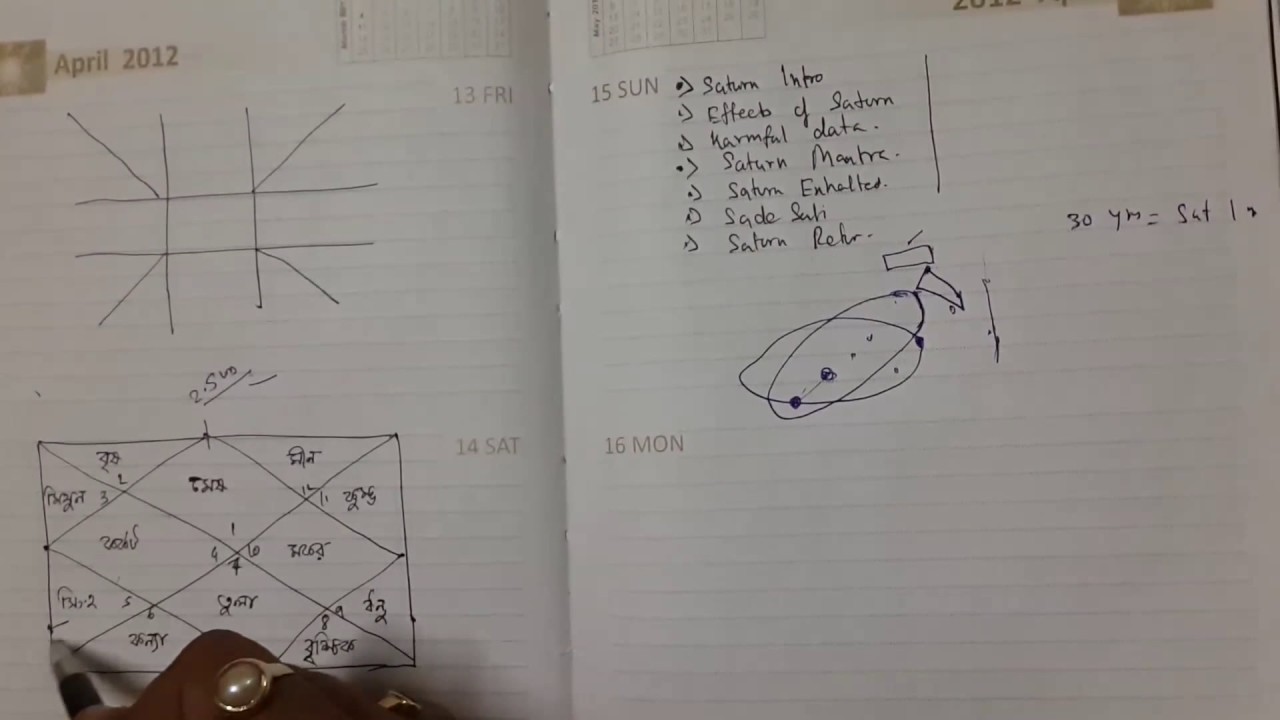 April 2012
13 FRI
2.500
14 SAT
বৃষ
মীন
মেষ
2
12
মিথুন 3
11 কুম্ভ
1
কর্কট
4
10 মকর
7
সিংহ 5
তুলা
9 ধনু
6
8
কন্যা
বৃশ্চিক
2012
15 SUN
Saturn Intro
Effects of Saturn
Harmful data.
Saturn Mantra.
Saturn Exhalted.
Sade Sati
Saturn Retr.
30 yrs = Sat 1
16 MON